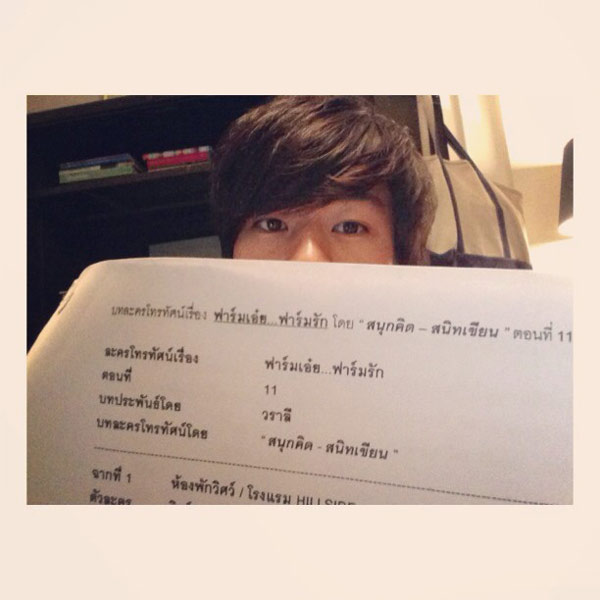 บทละครโทรทัศน์เรื่อง ฟาร์มเอ๋ย...ฟาร์มรัก โดย "สนุกคิด – สนิทเขียน" ตอนที่ 11
ละครโทรทัศน์เรื่อง ฟาร์มเอ๋ย...ฟาร์มรัก
ตอนที่ 11
บทประพันธ์โดย วราลี
บทละครโทรทัศน์โดย "สนุกคิด - สนิทเขียน"
ฉากที่ 1 ห้องพักวิศว์ / โรงแรม HILLSIDE
ตัวละคร